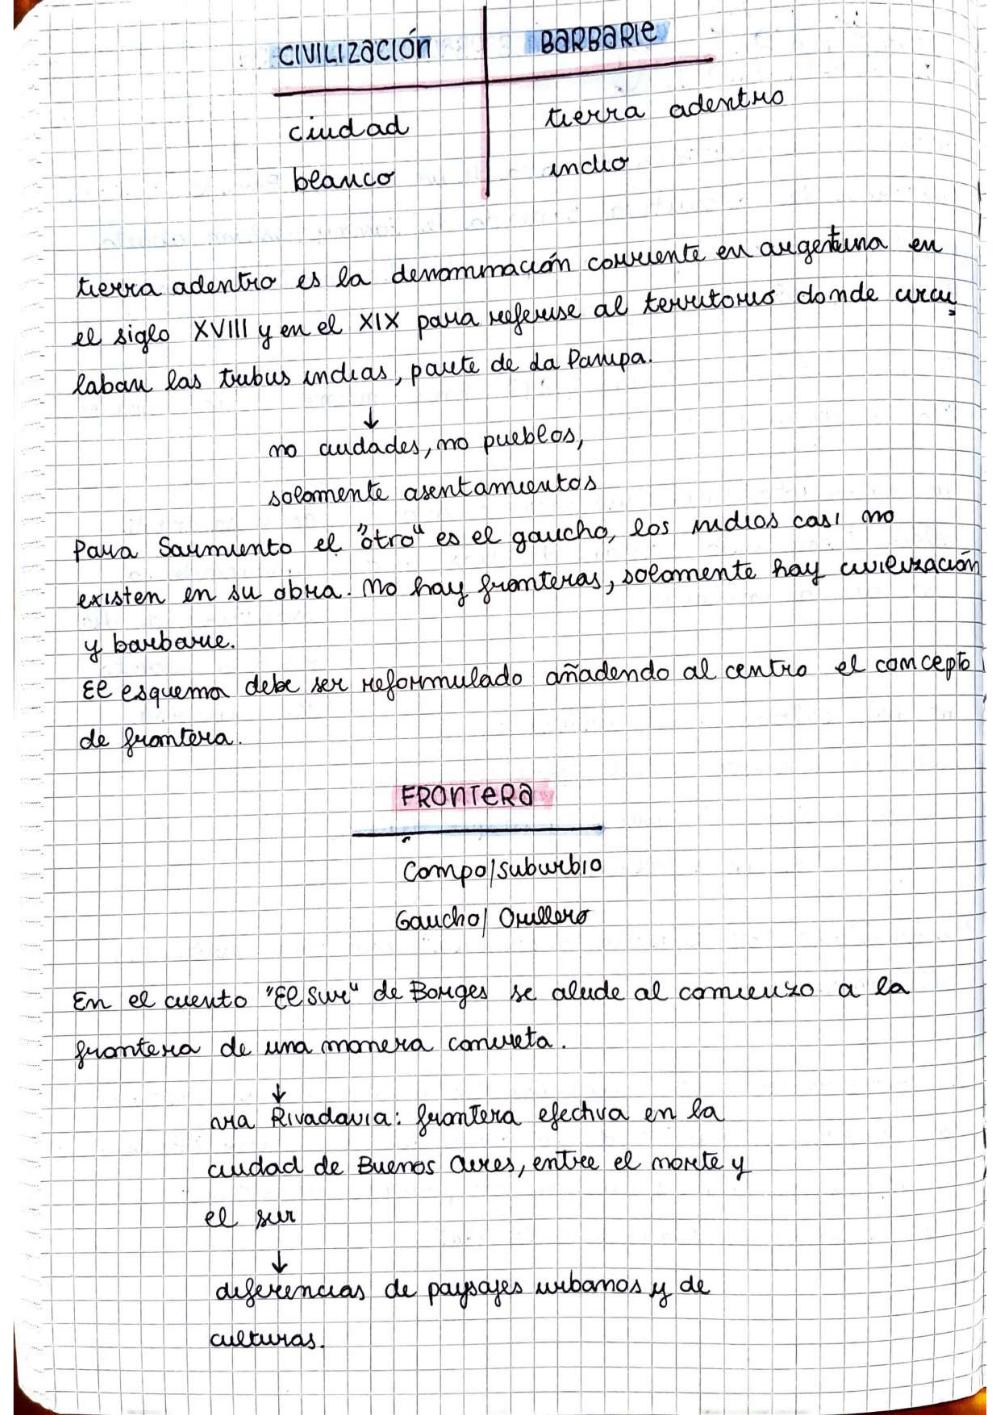 CIVILIZACIÓN BARBARIE
ciudad tierra adentro
blanco indio
tierra adentro es la denominación corriente en argentina en
el siglo XVIII y en el XIX para referirse al territorios donde circu
laban las tribus indias, parte de la Pampa.
↓
no ciudades, no pueblos,
solamente asentamientos
Para Sarmiento el "otro" es el gaucho, los indios casi no
existen en su obra. No hay fronteras, solamente hay civilización
y barbarie.
El esquema debe ser reformulado añadendo al centro el concepto
de frontera.
FRONTERA
Campo/suburbio
Gaucho/ Orillero
En el cuento "El Sur" de Borges se alude al comienzo a la
frontera de una manera concreta.
↓
Rivadavia: frontera efectiva en la
ciudad de Buenos Aires, entre el norte y
el sur
↓
diferencias de paysajes urbanos y de
culturas.